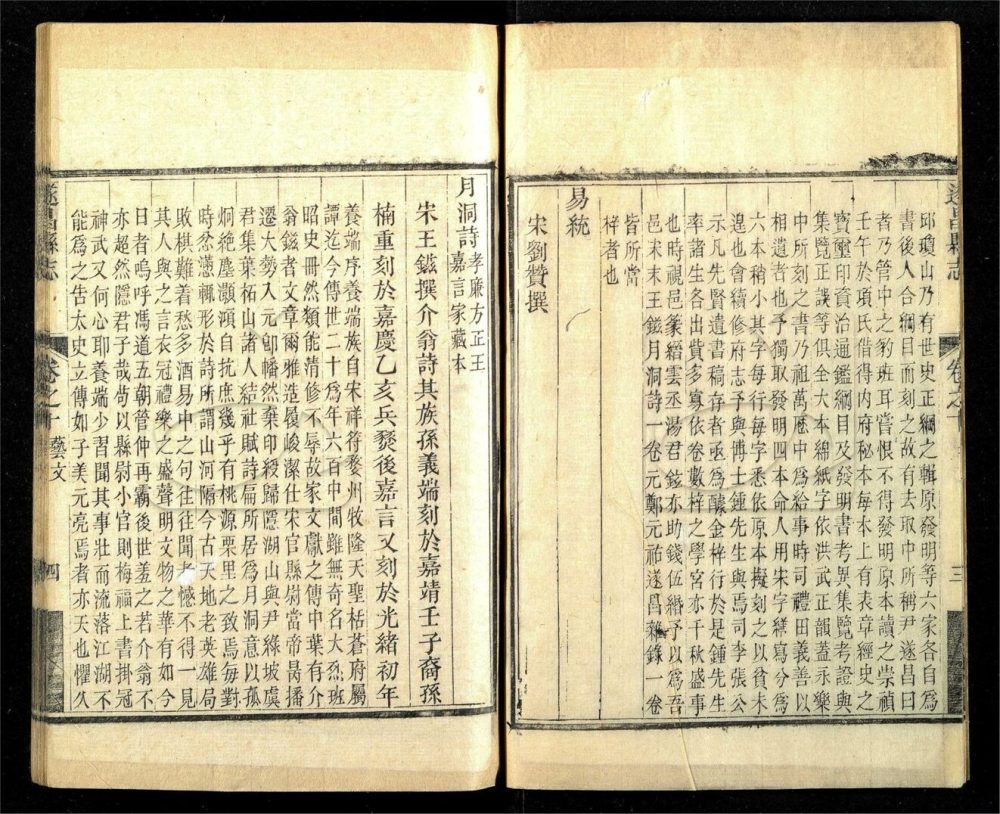 遂昌縣志
卷之十
三
邱瓊山乃有世史正綱之輯原發明等六家各自爲
書後人合綱目而刻之故有去取中所稱尹遂昌曰
者乃管中之豹班耳嘗恨不得發明原本讀之崇禎
壬午於項氏借得內府秘本每本上有表章經史之
寶璽印資治通鑑綱目及發明書考異集覽考證與
集覽正誤等俱全大本綿紙字依洪武正韻蓋永樂
中所刻之書乃祖萬歷中爲給事時司禮田義善以
相遺者也予獨取發明四本命人用宋字繕寫分爲
六本稍小其字每行每字悉依原本擬刻之以貧未
遑也會續修府志予與博士鍾先生與焉司李張公
示凡先賢遺書稿存者亟爲醵金梓行於是鍾先生
率諸生各出貲多寡依卷數梓之學宮亦千秋盛事
也時視邑篆縉雲丞湯君鎡亦助錢伍緡予以爲吾
邑宋末王鎡月洞詩一卷元鄭元祐遂昌雜錄一卷
皆所當
梓者也
易統
宋劉贊撰
月洞詩孝廉方正王嘉言家藏本
宋王鎡撰介翁詩其族孫義端刻於嘉靖壬子裔孫
楠重刻於嘉慶乙亥兵燹後嘉言又刻於光緒初年
養端序養端族自宋祥符婺州牧隆天聖枯蒼府屬
譚迄今傳世二十爲年六百中間雖無奇名大烈班
昭史冊然類能清修不辱故家文獻之傳中葉有介
翁鎡者文章爾雅造履峻潔仕宋官縣尉當帝昺播
遷大勢入元卽幡然棄印綬歸隱湖山與尹綠坡虞
君集葉柘山諸人結社賦詩扁所居爲月洞意以孤
炯絶塵灝澒自抗庶幾乎有桃源栗里之致焉每對
時忿懣輒形於詩所謂山河隔今古天地老英雄局
敗棋難着愁多酒易中之句往往聞者憾不得一見
其人與之言衣冠禮樂之盛聲明文物之華有如今
日者嗚呼馮道五朝管仲再霸後世羞之若介翁不
亦超然隱君子哉尚以縣尉小官則梅福上書掛冠
神武又何心耶養端少習聞其事壯而流落江湖不
能爲之告太史立傳如子美元亮焉者亦天也懼久
遂昌縣志
卷之十
藝文
四